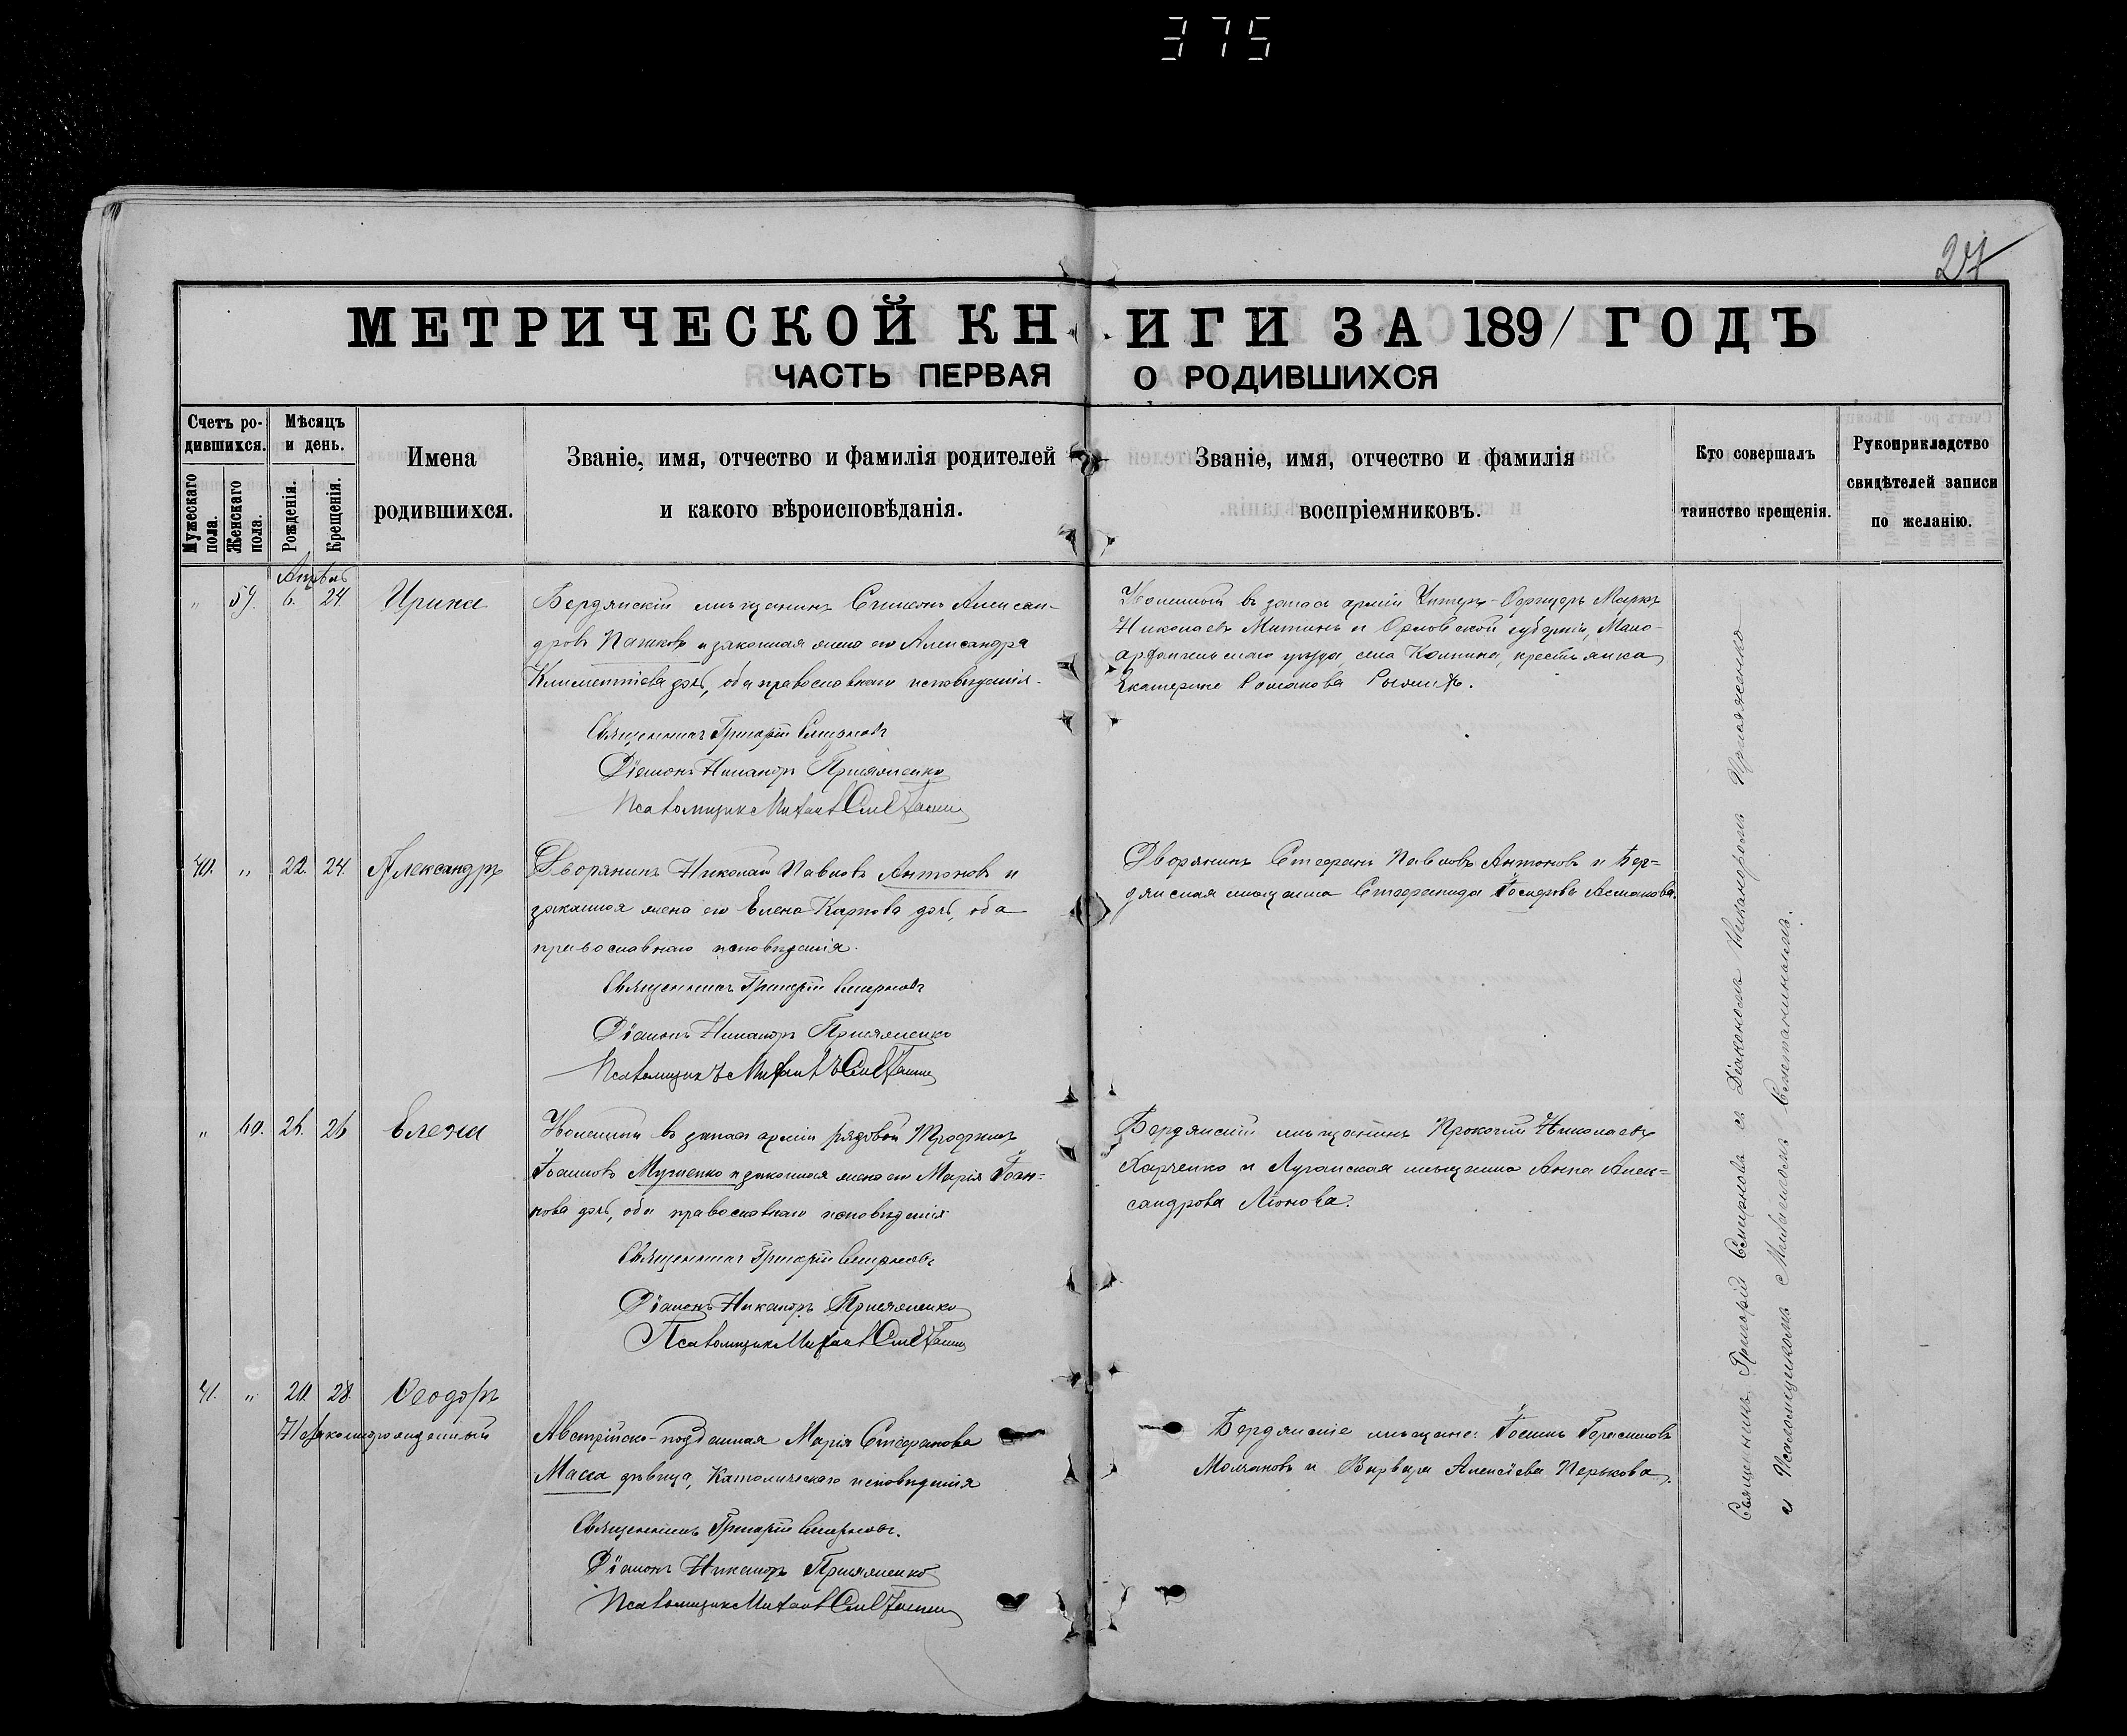 375
27
МЕТРИЧЕСКОЙ КНИГИ ЗА 1891 ГОДЪ
ЧАСТЬ ПЕРВАЯ О РОДИВШИХСЯ
Счетъ ро-
дившихся.
Мужескаго
пола.
Женскаго
пола.
Мѣсяцъ
и день.
Рожденія.
Крещенія.
Имена
родившихся.
Званіе, имя, отчество и фамилія родителей
и какого вѣроисповѣданія.
Званіе, имя, отчество и фамилія
воспріемниковъ.
Кто совершалъ
таинство крещенія.
Рукоприкладство
свидѣтелей записи
по желанію.
Апрѣль
" 59. 6. 24. Ирина
Бердянскій мѣщанинъ Симеонъ Алексан-
дровъ и законная жена его Александра
Климентіева дочь, оба православнаго исповѣданія.
Священникъ Григорій Смирновъ
Діаконъ Никаноръ Присяженко
Псаломщикъ Михаилъ
Уволенный въ запасъ арміи Унтеръ-Офицеръ Маркъ
Николаевъ Митинъ и Орловской губерніи, Мало-
архангельскаго уѣзда, села крестьянка
Екатерина Романова
40. " 22. 24. Александръ
Дворянинъ Николай Павловъ Антоновъ и
законная жена его Елена Карпова дочь, оба
православнаго исповѣданія.
Священникъ Григорій Смирновъ
Діаконъ Никаноръ Присяженко
Псаломщикъ Михаилъ
Дворянинъ Стефанъ Павловъ Антоновъ и Бер-
дянская мѣщанка Стефанида Іосифова
" 60. 26. 26 Елена
Уволенный въ запасъ арміи рядовой Трофимъ
Іоанновъ и законная жена его Марія Іоан-
нова дочь, оба православнаго исповѣданія
Священникъ Григорій Смирновъ
Діаконъ Никаноръ Присяженко
Псаломщикъ Михаилъ
Бердянскій мѣщанинъ Прокопій Николаевъ
Харченко и Луганская мѣщанка Анна Алек-
сандрова Ліонова.
41. " 20. 28. Ѳеодоръ
Незаконнорожденный
Австрійско-подданная Марія Стефанова
Маса дѣвица, Католическаго исповѣданія
Священникъ Григорій Смирновъ.
Діаконъ Никаноръ Присяженко
Псаломщикъ Михаилъ
Бердянскіе мѣщане: Герасимовъ
Молчановъ и Варвара Алексіева Перькова.
Священникъ Григорій Смирновъ съ Діакономъ Никаноромъ Присяженко
и Псаломщикомъ Михаиломъ